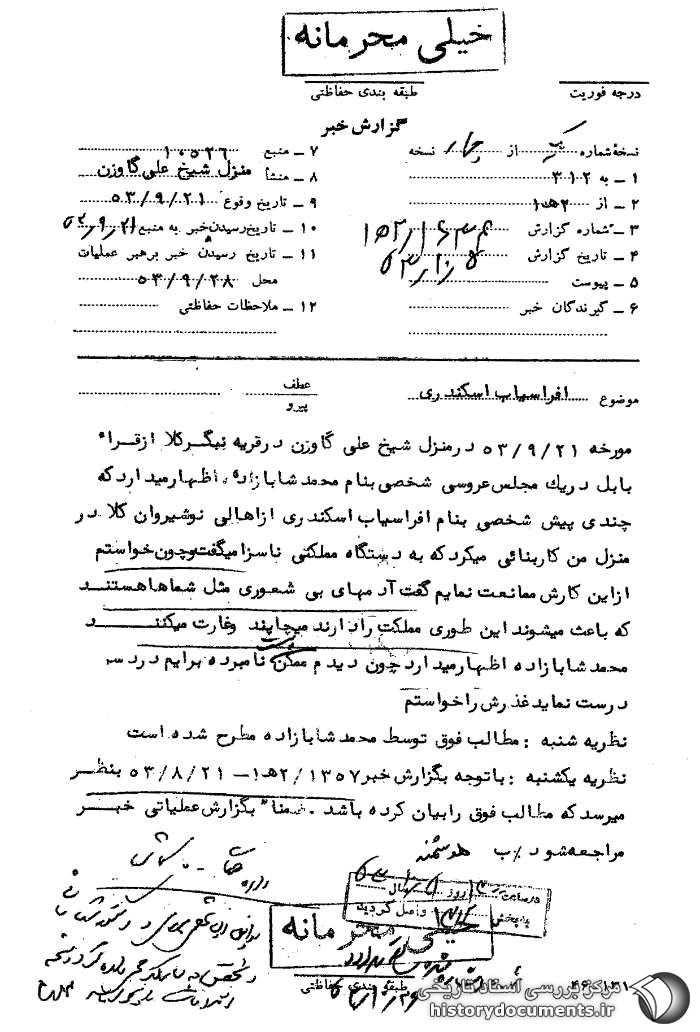 خیلی محرمانه
درجه فوریت
طبقه بندی حفاظتی
گزارش خبر
نسخهٔ شماره یک از چهار نسخه
۱ ــ به ۳۱۲
۲ ــ از ۲ﻫ۱
۳ ــ شماره گزارش
۴ ــ تاریخ گزارش ۵۳/۱۰/۵
۵ ــ پیوست
۶ ــ گیرندگان خبر
۷ ــ منبع ۱۰۵۲۶
۸ ــ منشأ منزل شیخ علی گاوزن
۹ ــ تاریخ وقوع ۵۳/۹/۲۱
۱۰ ــ تاریخ رسیدن خبر به منبع ۵۳/۹/۲۱
۱۱ ــ تاریخ رسیدن خبر برهبر عملیات
محل ۵۳/۹/۲۸
۱۲ ــ ملاحظات حفاظتی
موضوع افراسیاب اسکندری
عطف
پیرو
مورخه ۵۳/۹/۲۱ درمنزل شیخ علی گاوزن درقریه نیگرکلا ازقراء
بابل دریك مجلس عروسی شخصی بنام محمدشابازاده، اظهارمیداردکه
چندی پیش شخصی بنام افراسیاب اسکندری ازاهالی نوشیروان کلا در
منزل من کاربنائی میکردکه به دستگاه مملکتی ناسزا میگفت وچون خواستم
ازاین کارش ممانعت نمایم گفت آدمهای بی شعوری مثل شماهاهستند
که باعث میشوند این طوری مملکت را دارند میچاپند وغارت میکنند
محمدشابازاده اظهارمیداردچون دیدم ممکن است نامبرده برایم دردسر
درست نمایدعذرش راخواستم
نظریه شنبه : مطالب فوق توسط محمدشابازاده مطرح شده است
نظریه یکشنبه : باتوجه بگزارش خبر ۱۳۵۷/۲ﻫ۱ــ ۵۳/۸/۲۱ بنظر
میرسدکه مطالب فوق رابیان کرده باشد . ضمنا" بگزارش عملیاتی خبر
مراجعه شود /ب هوشمند
در ساعت روز سال
به بخش ۳۱۲ واصل گردید
خیلی محرمانه
طبقه بندی حفاظتی
۴۶-۱۳۱
مرکز بررسی اسناد تاریخی
historydocuments.ir